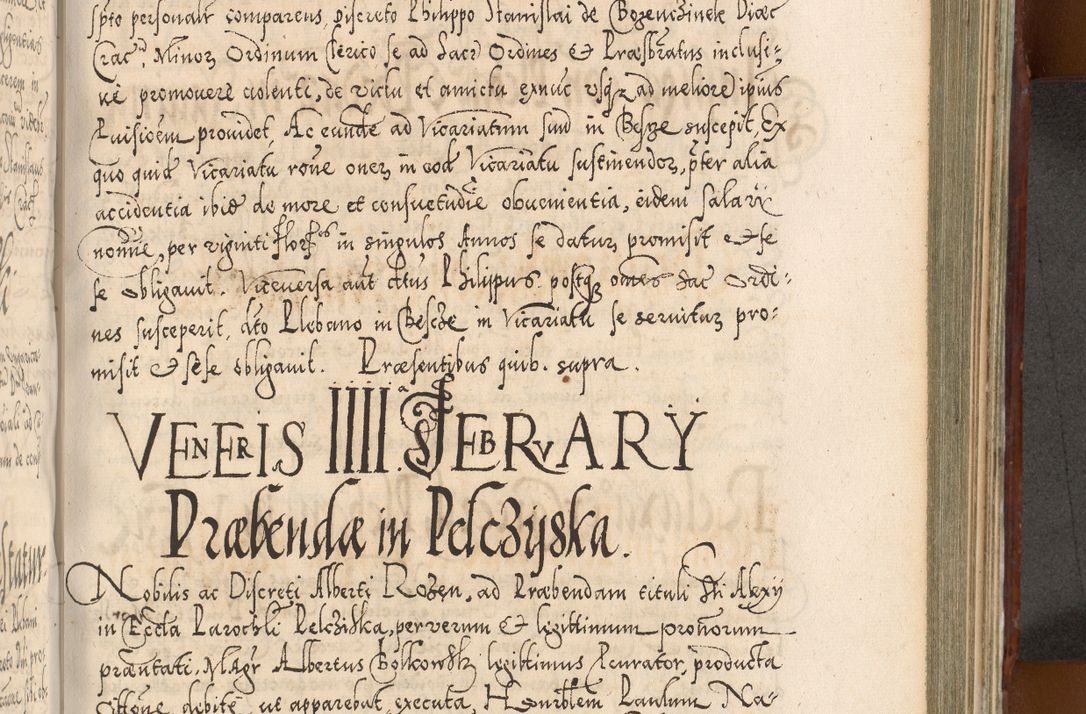 spto personalr comparens, discreto Philippo Stanislai de Bozenczinek Diæc
Crac, Minoz Ordinum Clerico se ad Sacr Ordines et Præsbratus inclusi-
ve promovere volenti, de victu et amictu exnuc usqz ad meliore ipius
Puisioem providet, Ac eunde ad Vicariatum suu in Besze suscepit, Ex
quo quide Vicariatu roue onez in eod Vicariatu sustinendoz, pter alia
accidentia ibide de more et consuetudie obuenientia, eidem salary
nomie, per viginti flor in singulos Annos se datuz promisit et se
se obligauit. Viceuersa aut dtus Philippus postqz omes sac ordi-
nes susceperit, dto Plebano in Besze in Vicariatu se seruituz pro-
misit et sese obligauit. Præsentibus quib. supra.
VENERIS IIII FEBRVARY
Præbendæ in Pelczyska.
Nobilis ac Discreti Alberti Rozen, ad Præbendam tituli Sti Alexy
in Eccta Parochli Pelcziska, per verum et legittimum patronum
præntati, Magr Albertus Bolkowsk legittimus Pcurator, producta
Cittone debite, ut apparebat, executa, Honrblem Paulum Na-